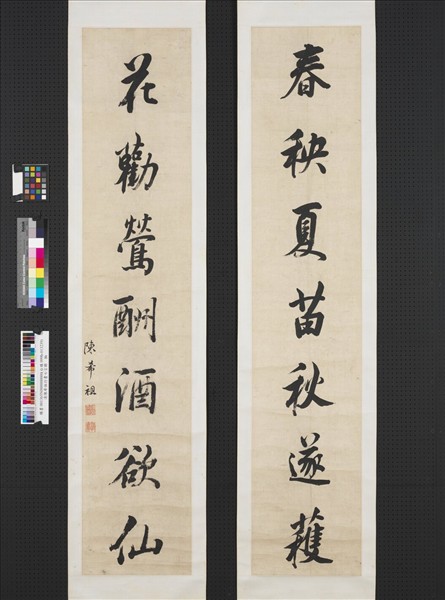 春秧夏苗秋遂蒦
花勸鶯酬酒欲仙
陳希祖